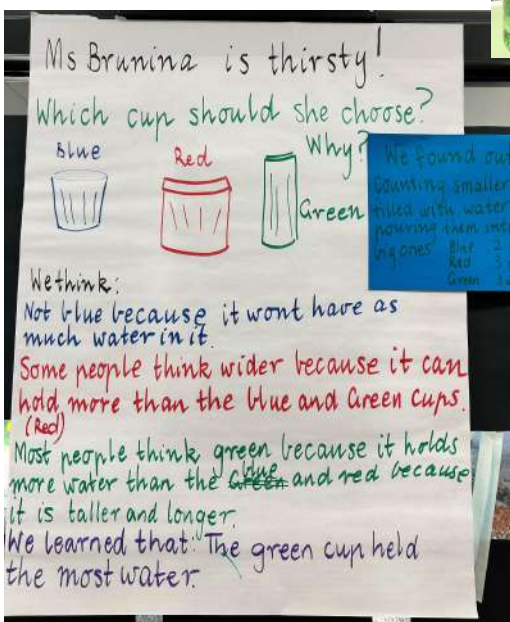 Ms Brunina is thirsty!
Which cup should she choose?
Why?
Blue
Red
Green
We found out
counting smaller
filled with water
pouring them into
big ones
Blue 2
Red 3
Green 3
We think:
Not blue because it wont have as
much water in it.
Some people think wider because it can
hold more than the blue and Green cups.
(Red)
Most people think green because it holds
more water than the blue and red because
it is taller and longer.
We learned that: The green cup held
the most water.